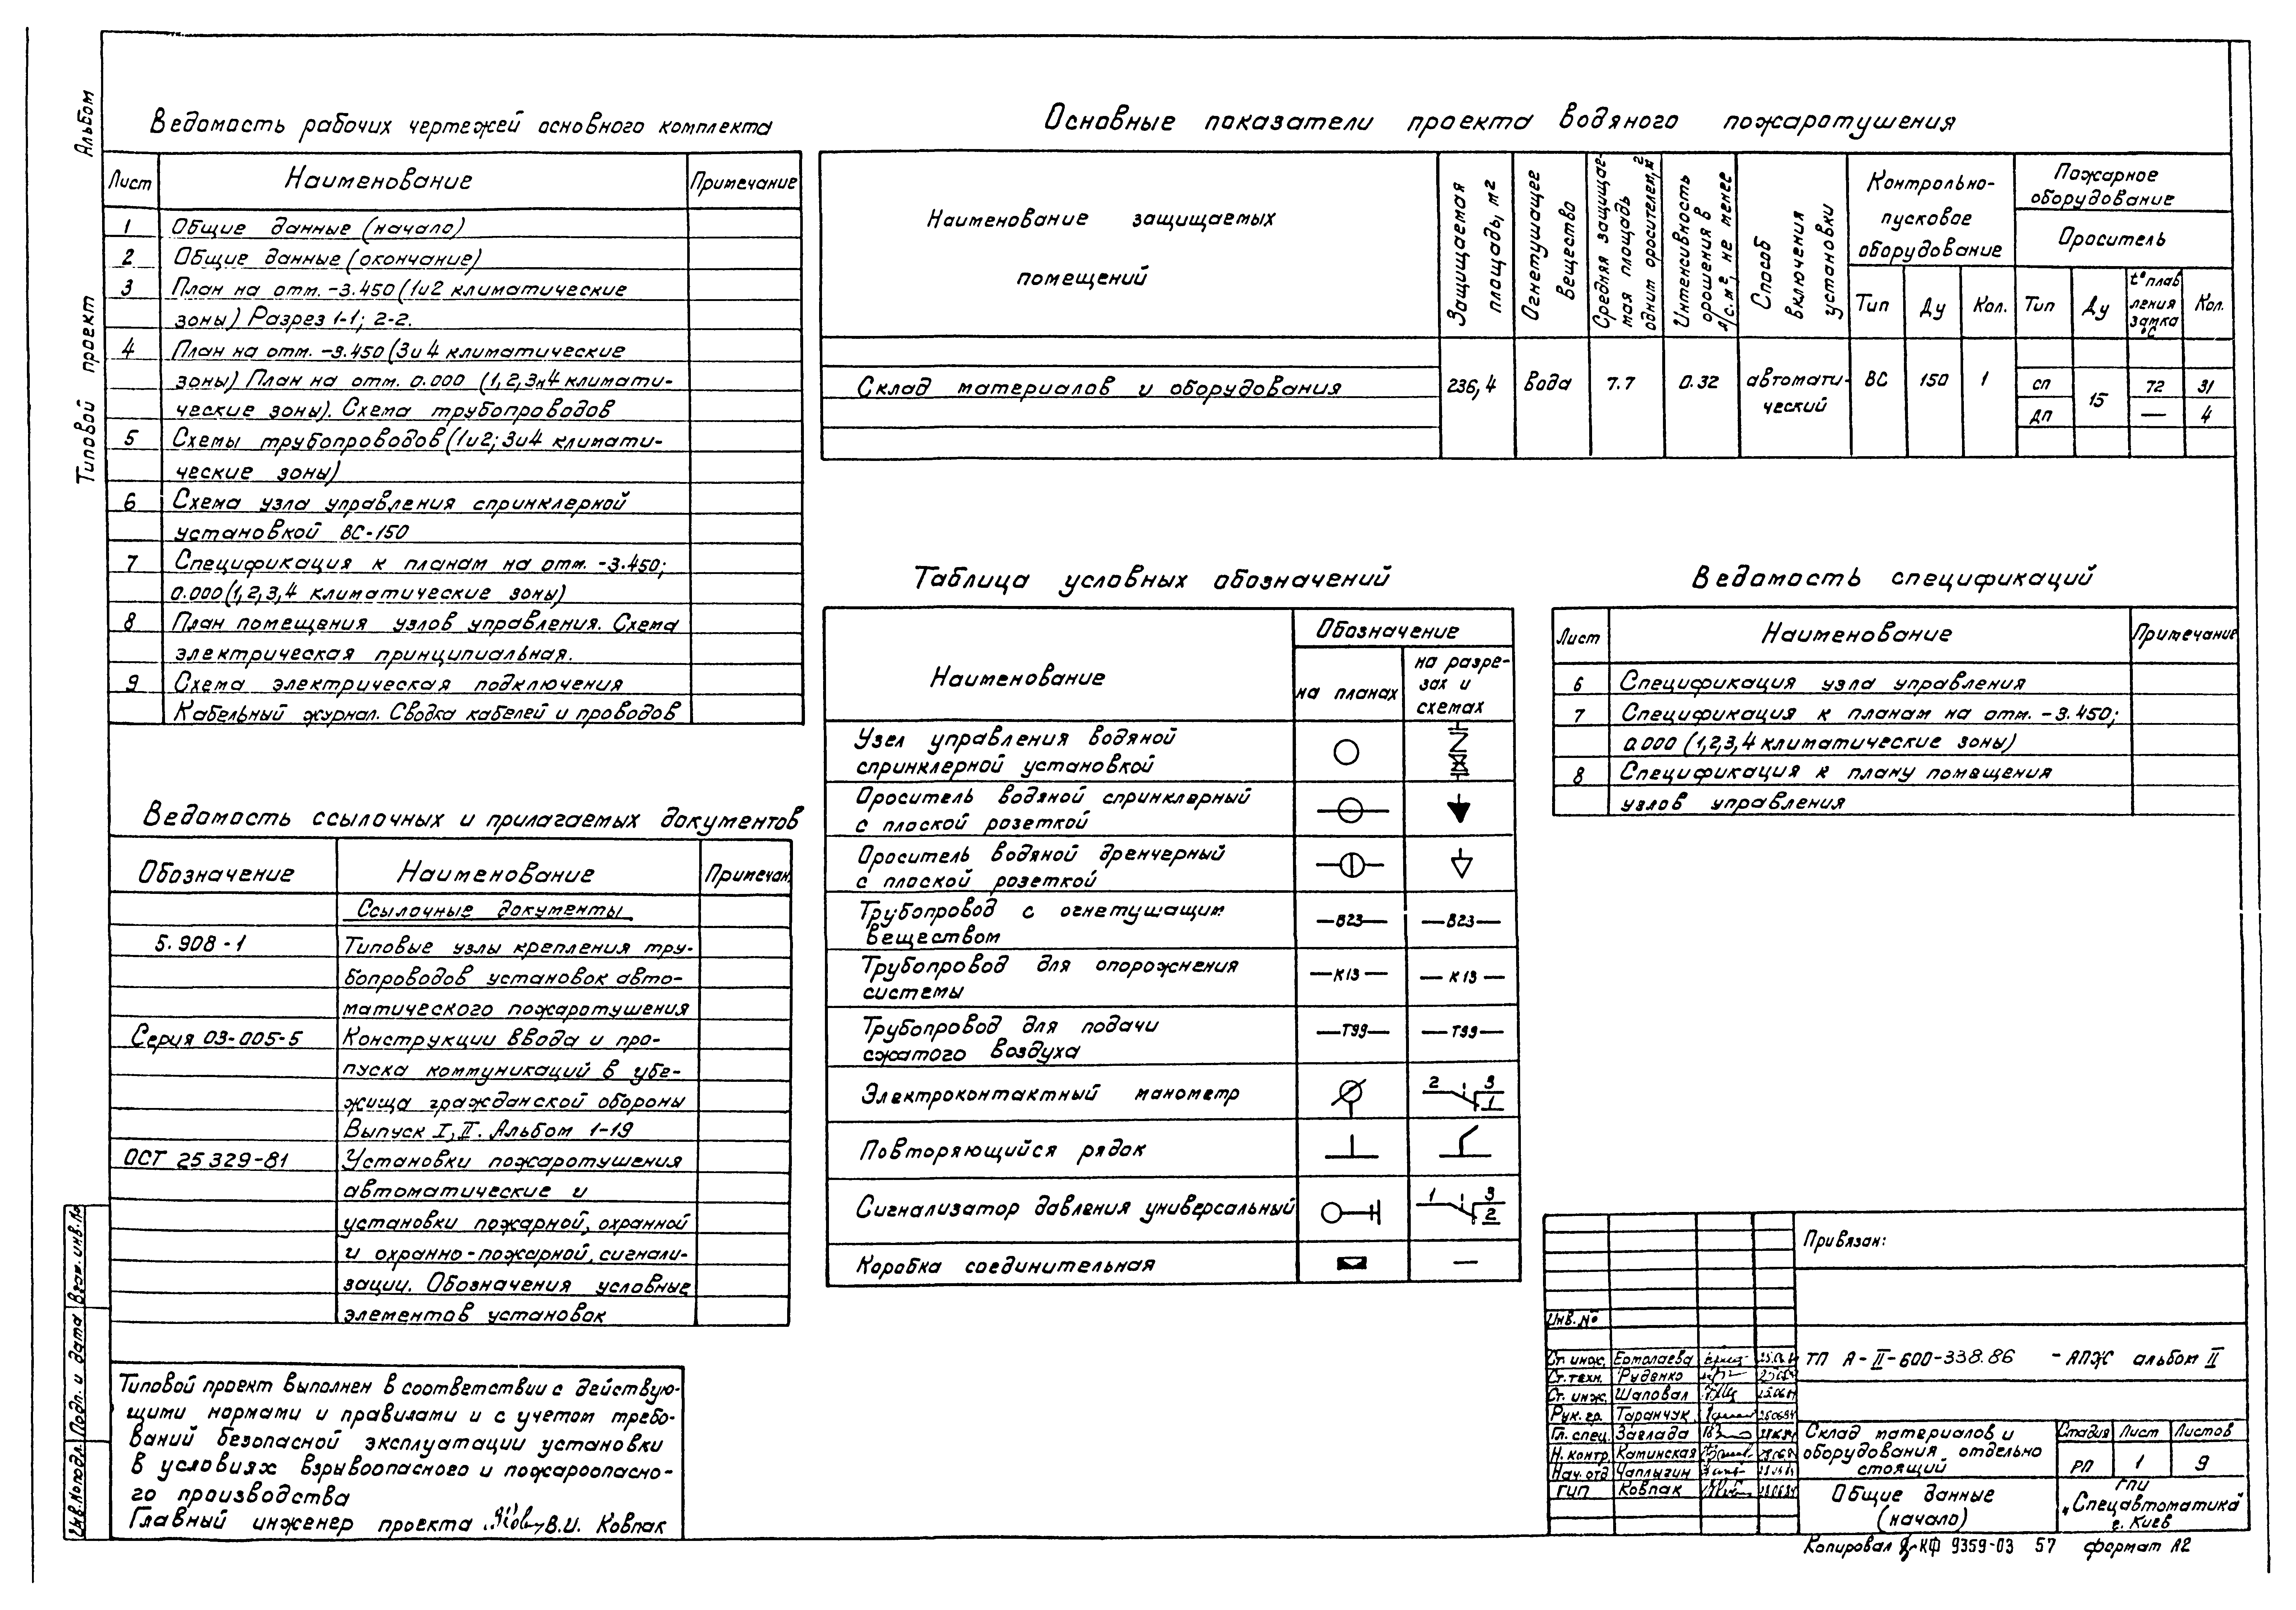 Альбом
Типовой проект
Ведомость рабочих чертежей основного комплекта
Лист Наименование Примечание
1 Общие данные (начало)
2 Общие данные (окончание)
3 План на отм. -3.450 (1и2 климатические
зоны) Разрез 1-1; 2-2.
4 План на отм. -3.450 (3и4 климатические
зоны) План на отм. 0.000 (1,2,3и4 климати-
ческие зоны). Схема трубопроводов
5 Схемы трубопроводов (1и2; 3и4 климати-
ческие зоны)
6 Схема узла управления спринклерной
установкой ВС-150
7 Спецификация к планам на отм. -3.450;
0.000 (1,2,3,4 климатические зоны)
8 План помещения узлов управления. Схема
электрическая принципиальная.
9 Схема электрическая подключения
Кабельный журнал. Сводка кабелей и проводов
Ведомость ссылочных и прилагаемых документов
Обозначение Наименование Примечан.
Ссылочные документы
5.908-1 Типовые узлы крепления тру-
бопроводов установок авто-
матического пожаротушения
Серия 03-005-5 Конструкции ввода и про-
пуска коммуникаций в убе-
жища гражданской обороны
Выпуск I, II. Альбом 1-19
ОСТ 25 329-81 Установки пожаротушения
автоматические и
установки пожарной, охранной
и охранно-пожарной, сигнали-
зации. Обозначения условные
элементов установок
Типовой проект выполнен в соответствии с действую-
щими нормами и правилами и с учетом требо-
ваний безопасной эксплуатации установки
в условиях взрывоопасного и пожароопасно-
го производства
Главный инженер проекта В.И. Ковпак
Основные показатели проекта водяного пожаротушения
Наименование защищаемых
помещений
Защищаемая
площадь, м2
Огнетушащее
вещество
Средняя защищае-
мая площадь
одним оросителем, м2
Интенсивность
орошения в
л/с.м2 не менее
Способ
включения
установки
Контрольно-
пусковое
оборудование
Пожарное
оборудование
Ороситель
Тип Ду Кол. Тип Ду t° плав
ления
замка
°С
Кол.
Склад материалов и оборудования 236,4 вода 7.7 0.32 автомати-
ческий
ВС 150 1 СП 15 72 31
ДП — 4
Таблица условных обозначений
Наименование Обозначение
на планах на разре-
зах и
схемах
Узел управления водяной
спринклерной установкой
Ороситель водяной спринклерный
с плоской розеткой
Ороситель водяной дренчерный
с плоской розеткой
Трубопровод с огнетушащим
веществом
—В23— —В23—
Трубопровод для опорожнения
системы
—К13— —К13—
Трубопровод для подачи
сжатого воздуха
—Т99— —Т99—
Электроконтактный манометр 2 3
1
Повторяющийся рядок
Сигнализатор давления универсальный 1 3
2
Коробка соединительная —
Ведомость спецификаций
Лист Наименование Примечание
6 Спецификация узла управления
7 Спецификация к планам на отм. -3.450;
0.000 (1,2,3,4 климатические зоны)
8 Спецификация к плану помещения
узлов управления
Привязан:
Инв. №
Ст. инж. Ермолаева
Ст. техн. Руденко
Ст. инж. Шаповал
Рук. гр. Таранчук
Гл. спец. Заглада
Н. контр. Каминская
Нач. отд Чаплыгин
ГИП Ковпак
ТП А-II-600-338.86 -АПЖ альбом II
Склад материалов и
оборудования отдельно
стоящий
Стадия Лист Листов
РП 1 9
Общие данные
(начало)
ГПИ
"Спецавтоматика"
г. Киев
Копировал КФ 9359-03 57 формат А2
Взам. инв. №
Подп. и дата
Инв. № подл.